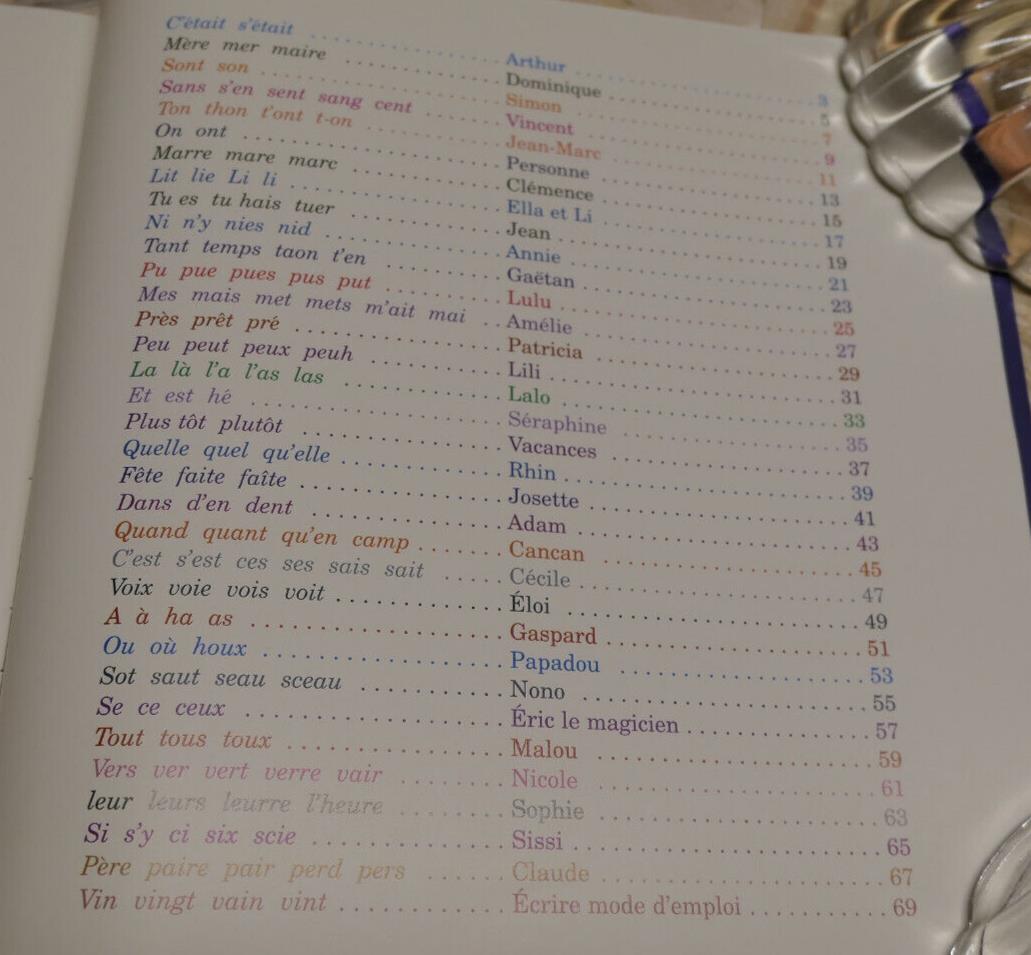 C'était s'était ........ Arthur ........ 3
Mère mer maire ........ Dominique ........ 5
Sont son ........ Simon ........ 7
Sans s'en sent sang cent ........ Vincent ........ 9
Ton thon t'ont t-on ........ Jean-Marc ........ 11
On ont ........ Personne ........ 13
Marre mare marc ........ Clémence ........ 15
Lit lie Li li ........ Ella et Li ........ 17
Tu es tu hais tuer ........ Jean ........ 19
Ni n'y nies nid ........ Annie ........ 21
Tant temps taon t'en ........ Gaëtan ........ 23
Pu pue pues pus put ........ Lulu ........ 25
Mes mais met mets m'ait mai ........ Amélie ........ 27
Près prêt pré ........ Patricia ........ 29
Peu peut peux peuh ........ Lili ........ 31
La là l'a l'as las ........ Lalo ........ 33
Et est hé ........ Séraphine ........ 35
Plus tôt plutôt ........ Vacances ........ 37
Quelle quel qu'elle ........ Rhin ........ 39
Fête faite faîte ........ Josette ........ 41
Dans d'en dent ........ Adam ........ 43
Quand quant qu'en camp ........ Cancan ........ 45
C'est s'est ces ses sais sait ........ Cécile ........ 47
Voix voie vois voit ........ Éloi ........ 49
A à ha as ........ Gaspard ........ 51
Ou où houx ........ Papadou ........ 53
Sot saut seau sceau ........ Nono ........ 55
Se ce ceux ........ Éric le magicien ........ 57
Tout tous toux ........ Malou ........ 59
Vers ver vert verre vair ........ Nicole ........ 61
leur leurs leurre l'heure ........ Sophie ........ 63
Si s'y ci six scie ........ Sissi ........ 65
Père paire pair perd pers ........ Claude ........ 67
Vin vingt vain vint ........ Écrire mode d'emploi ........ 69